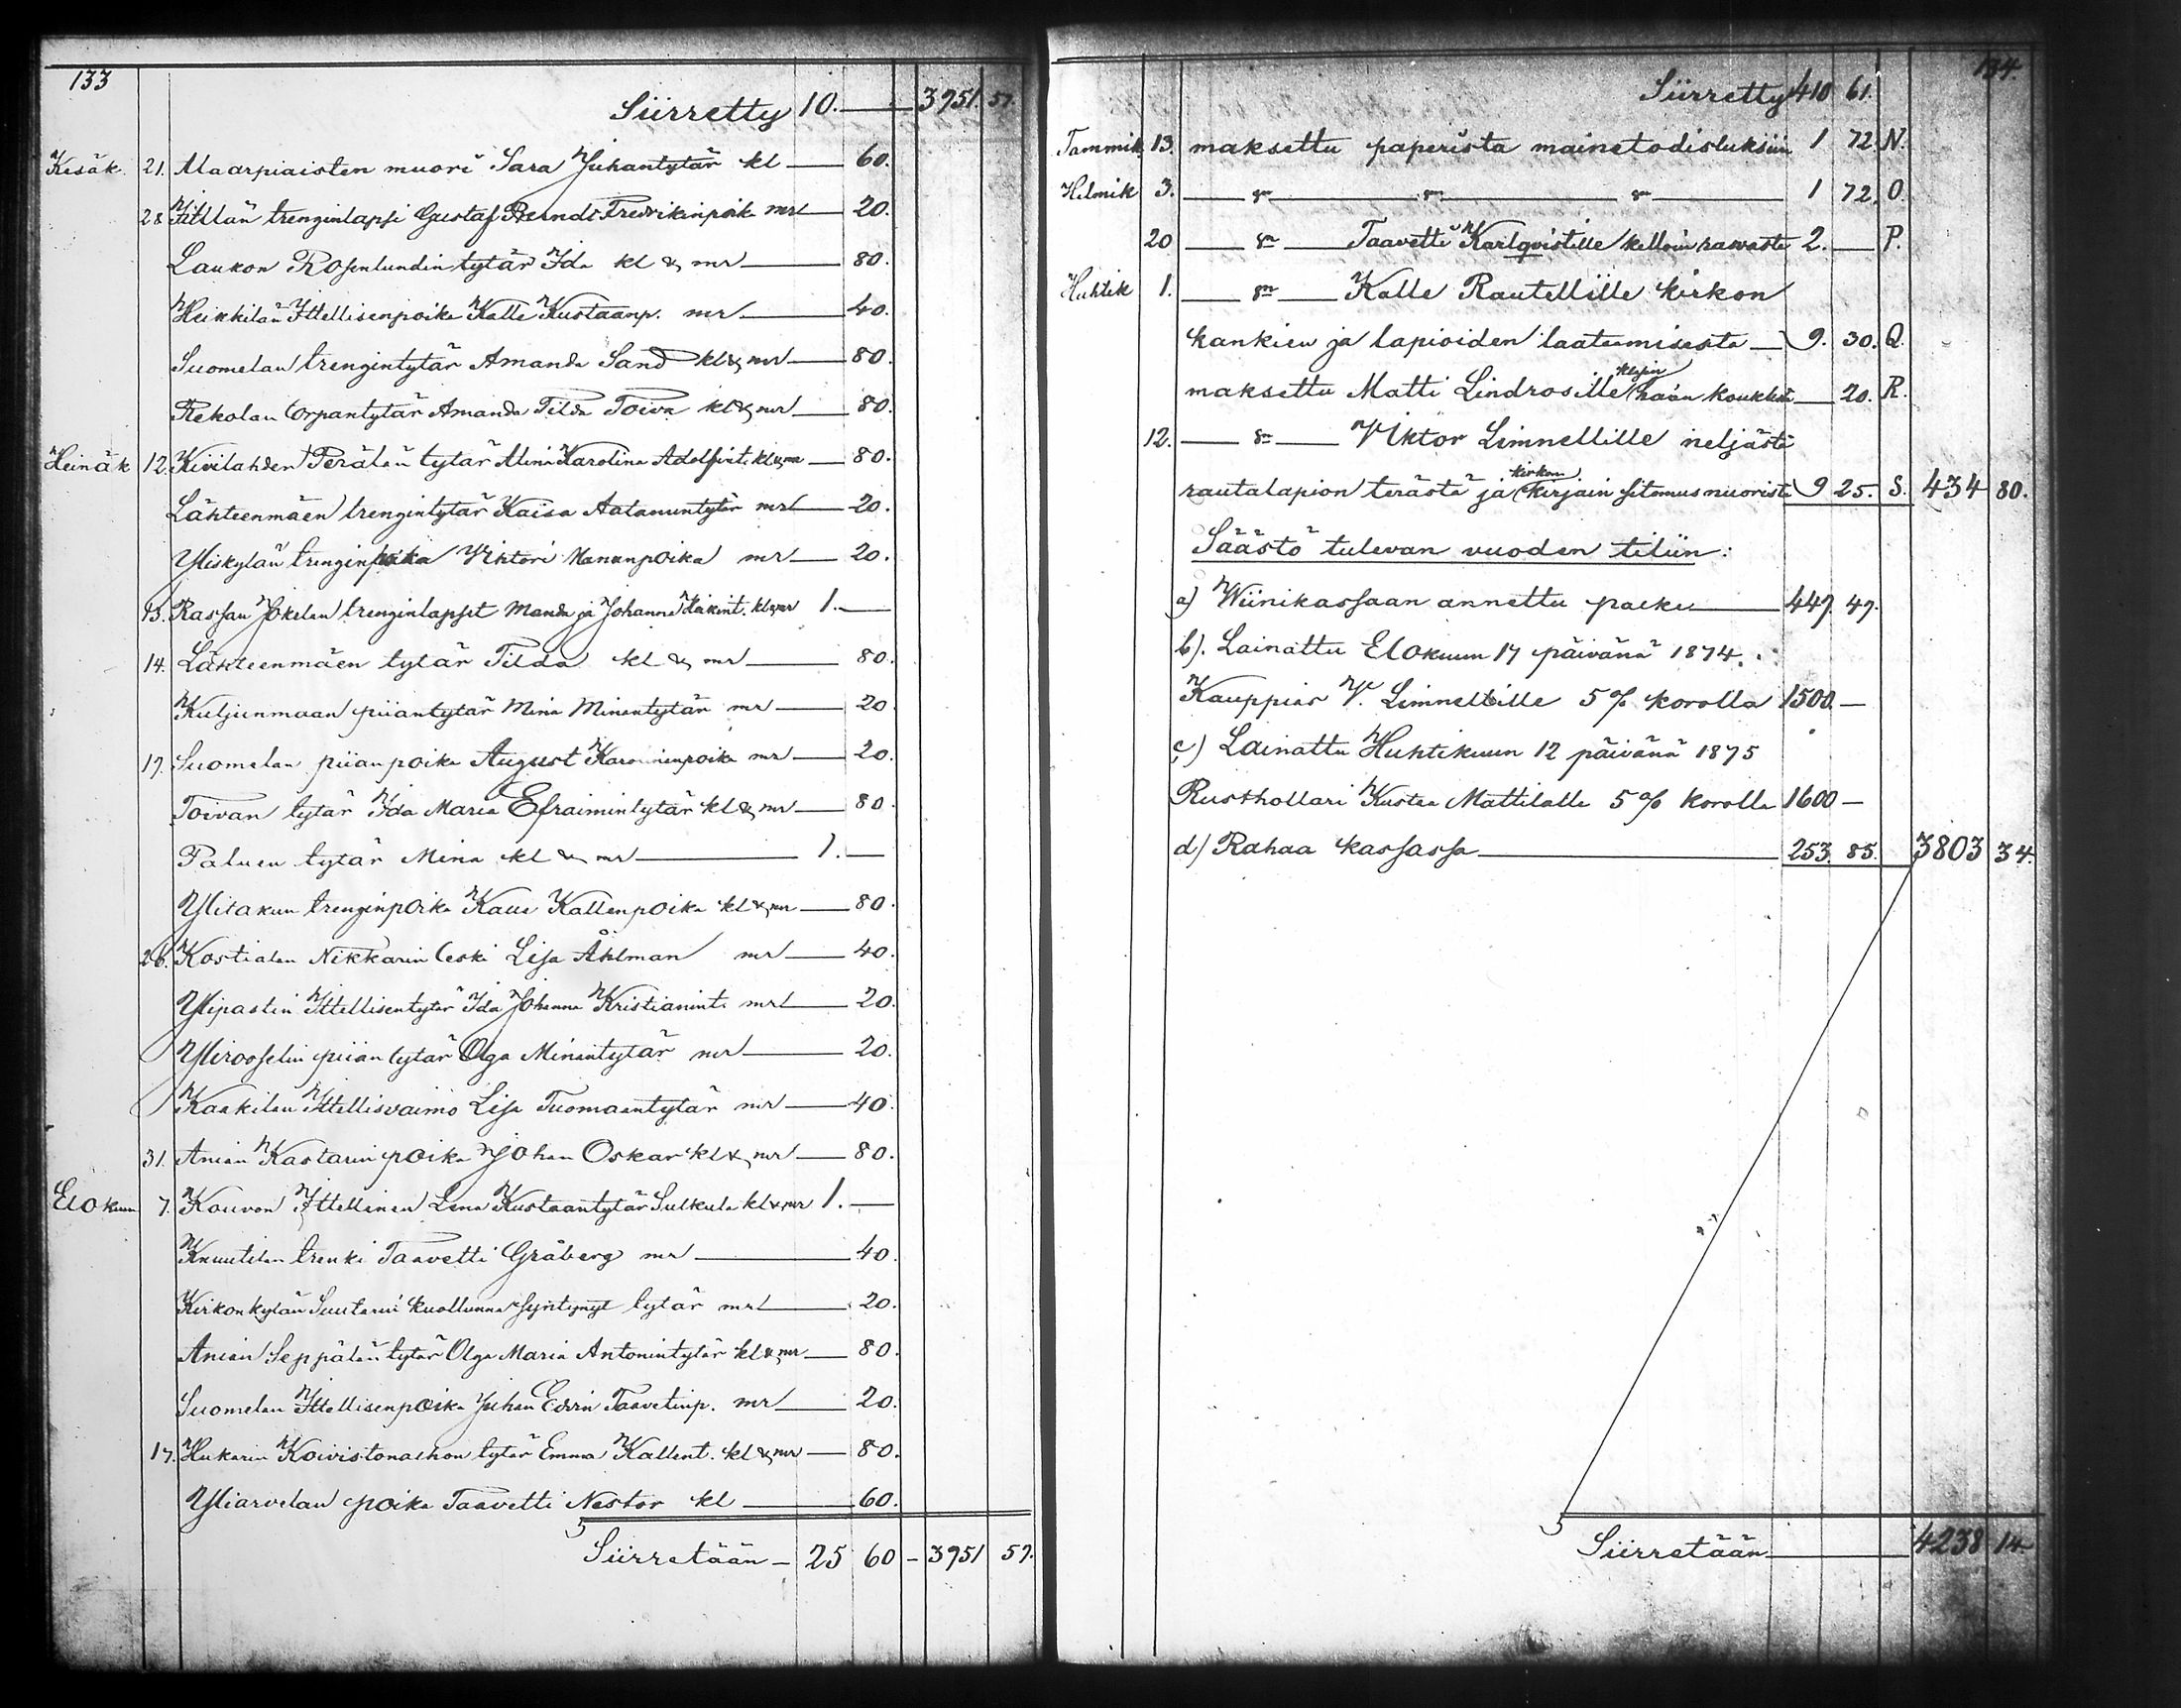 133
Siirretty 10. — 3951 57.
Kesäk. 21. Maarpiaisten muori Sara Juhantytär kl — 60.
28. Jillän trenginlapsi Gustaf Berndt Fredrikinpoika mr — 20.
Laukon Rosenlundin tytär Ida kl & mr — 80.
Heikkilän Ittellisenpoika Kalle Kustaanp. mr — 40.
Suomelan trengintytär Amanda Sand kl & mr — 80.
Rekolan torpantytär Amanda Tilda Toiva kl & mr — 80.
Heinäk 12. Kivilahden Perälän tytär Mina Karolina Adolfint. kl & mr — 80.
Lähteenmäen trengintytär Kaisa Aatamintytär mr — 20.
Yliskylän trenginpoika Viktori Manunpoika mr — 20.
13. Rassan Jokelan trenginlapset Manda ja Johanna Heikint. kl & mr 1. —
14. Lähteenmäen tytär Tilda kl & mr — 80.
Kuljunmaan piiantytär Mina Minantytär mr — 20
17. Suomelan piianpoika August poika mr — 20.
Toivan tytär Ida Maria Efraimintytär kl & mr — 80.
Paluen tytär Mina kl & mr — 1. —
Ylitakun trenginpoika Kalle Kallenpoika kl & mr — 80.
26. Kostialan Nikkarin leski Lisa Åhlman mr — 40.
Ylipastin Ittellisentytär Ida Johanna Kristianint. mr — 20.
Yliroosselin piian tytär Olga Minantytär mr — 20.
Kaakilan Ittellisvaimo Lisa Tuomaantytär mr — 40.
31. Anian Kastarin poika Johan Oskar kl & mr — 80.
Elokuun 7. Kouvon Ittellinen Lena Kustaantytär Sulkula kl & mr 1. —
Knuutilan trenki Taavetti Gråberg mr — 40.
Kirkonkylän Suutarin kuolluna syntynyt tytär mr — 20.
Anian Seppälän tytär Olga Maria Antonintytär kl & mr — 80.
Suomelan Ittellisenpoika Juhan Edvin Taavetinp. mr — 20.
17. Hukarin Koivistonahon tytär Emma Kallent. kl & mr — 80.
Yliarvelan poika Taavetti Nestor kl — 60.
Siirretään — 25 60 — 3951 57.
134.
Siirretty 410 61.
Tammik. 13. maksettu paperista mainetodistuksiin 1 72. N.
Helmik 3. — sn — sn — sn — 1 72. O.
20 — sn — Taavetti Karlqvistille kelloin rasvasta 2. — P.
Huhtik 1. — sn — Kalle Rautellille kirkon
kankien ja lapioiden laatemisesta — 9. 30. Q.
maksettu Matti Lindrosille haan koukusta — 20. R.
12. — sn — Viktor Limnellille neljästä
kirkon
rautalapion terästä ja kirjain sitomusnuorista 9 25. S. 434 80.
Säästö tulevan vuoden tiliin:
a) Wiinikassaan annettu — 447. 49.
b). Lainattu Elokuun 17 päivänä 1874.
Kauppias V. Limnellille 5 % korolla 1500. —
c) Lainattu Huhtikuun 12 päivänä 1875
Rusthollari Kustaa Mattilalle 5 % korolla 1600 —
d) Rahaa kassassa — 253 85. 3803 34.
Siirretään — 4238 14.